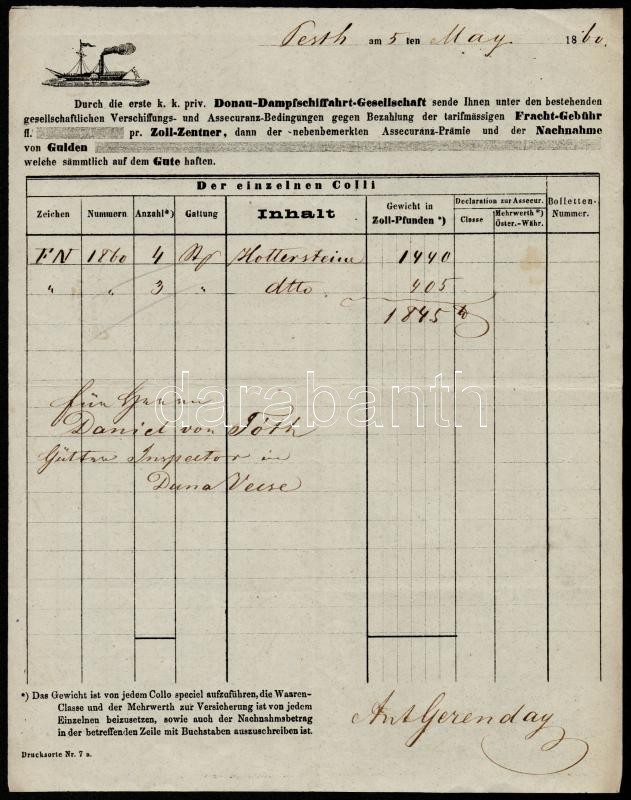 Pesth am 5 ten May 1860.
Durch die erste k. k. priv. Donau-Dampfschiffahrt-Gesellschaft sende Ihnen unter den bestehenden
gesellschaftlichen Verschiffungs- und Assecuranz-Bedingungen gegen Bezahlung der tarifmässigen Fracht-Gebühr
fl. pr. Zoll-Zentner, dann der nebenbemerkten Assecuránz-Prämie und der Nachnahme
von Gulden
welche sämmtlich auf dem Gute haften.
Der einzelnen Colli
Zeichen Nummern Anzahl*) Gattung Inhalt Gewicht in Zoll-Pfunden*) Declaration zur Assecur. Classe Mehrwerth*) Öster.-Währ. Bolletten-Nummer.
FN 1860 4 Hottersteine 1440
" " 3 " dtto 405
1845
für Herrn
Daniel von Tóth
Gütter Inspector in
Duna Vecse
darabanth
*) Das Gewicht ist von jedem Collo speciel aufzuführen, die Waaren-
Classe und der Mehrwerth zur Versicherung ist von jedem
Einzelnen beizusetzen, sowie auch der Nachnahmsbetrag
in der betreffenden Zeile mit Buchstaben auszuschreiben ist.
Ant Gerenday
Drucksorte Nr. 7 a.